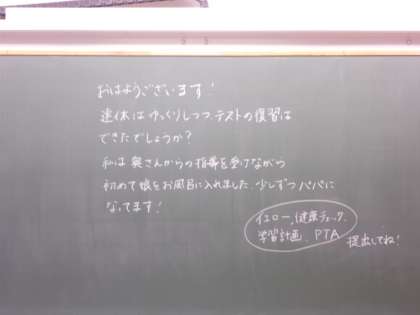 おはようございます！
連休はゆっくりしつつ、テストの復習は
できたでしょうか？
私は奥さんからの指導を受けながら
初めて娘をお風呂に入れました。少しずつパパに
なってます！
イエロー、健康チェック、
学習計画、PTA
提出してね！